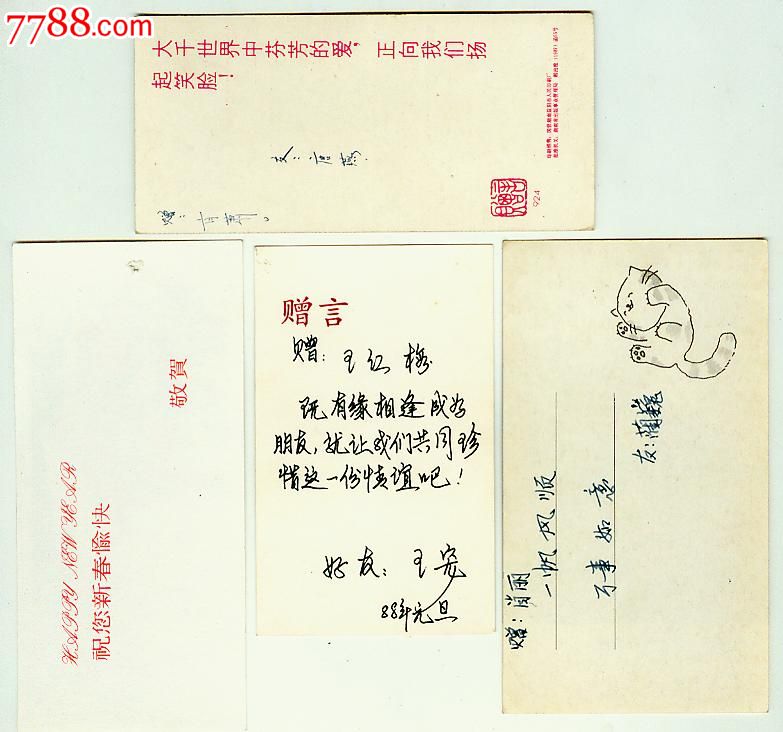 7788.com
大千世界中芬芳的爱，正向我们扬
起笑脸！
友：唐燕
赠：
924
HAPPY NEW YEAR
祝您新春愉快
敬賀
赠言
赠：王红梅
既有缘相逢成为
朋友，就让我们共同珍
惜这一份情谊吧！
好友：王宛
88年元旦
赠：肖丽
一帆风顺
万事如意
友：